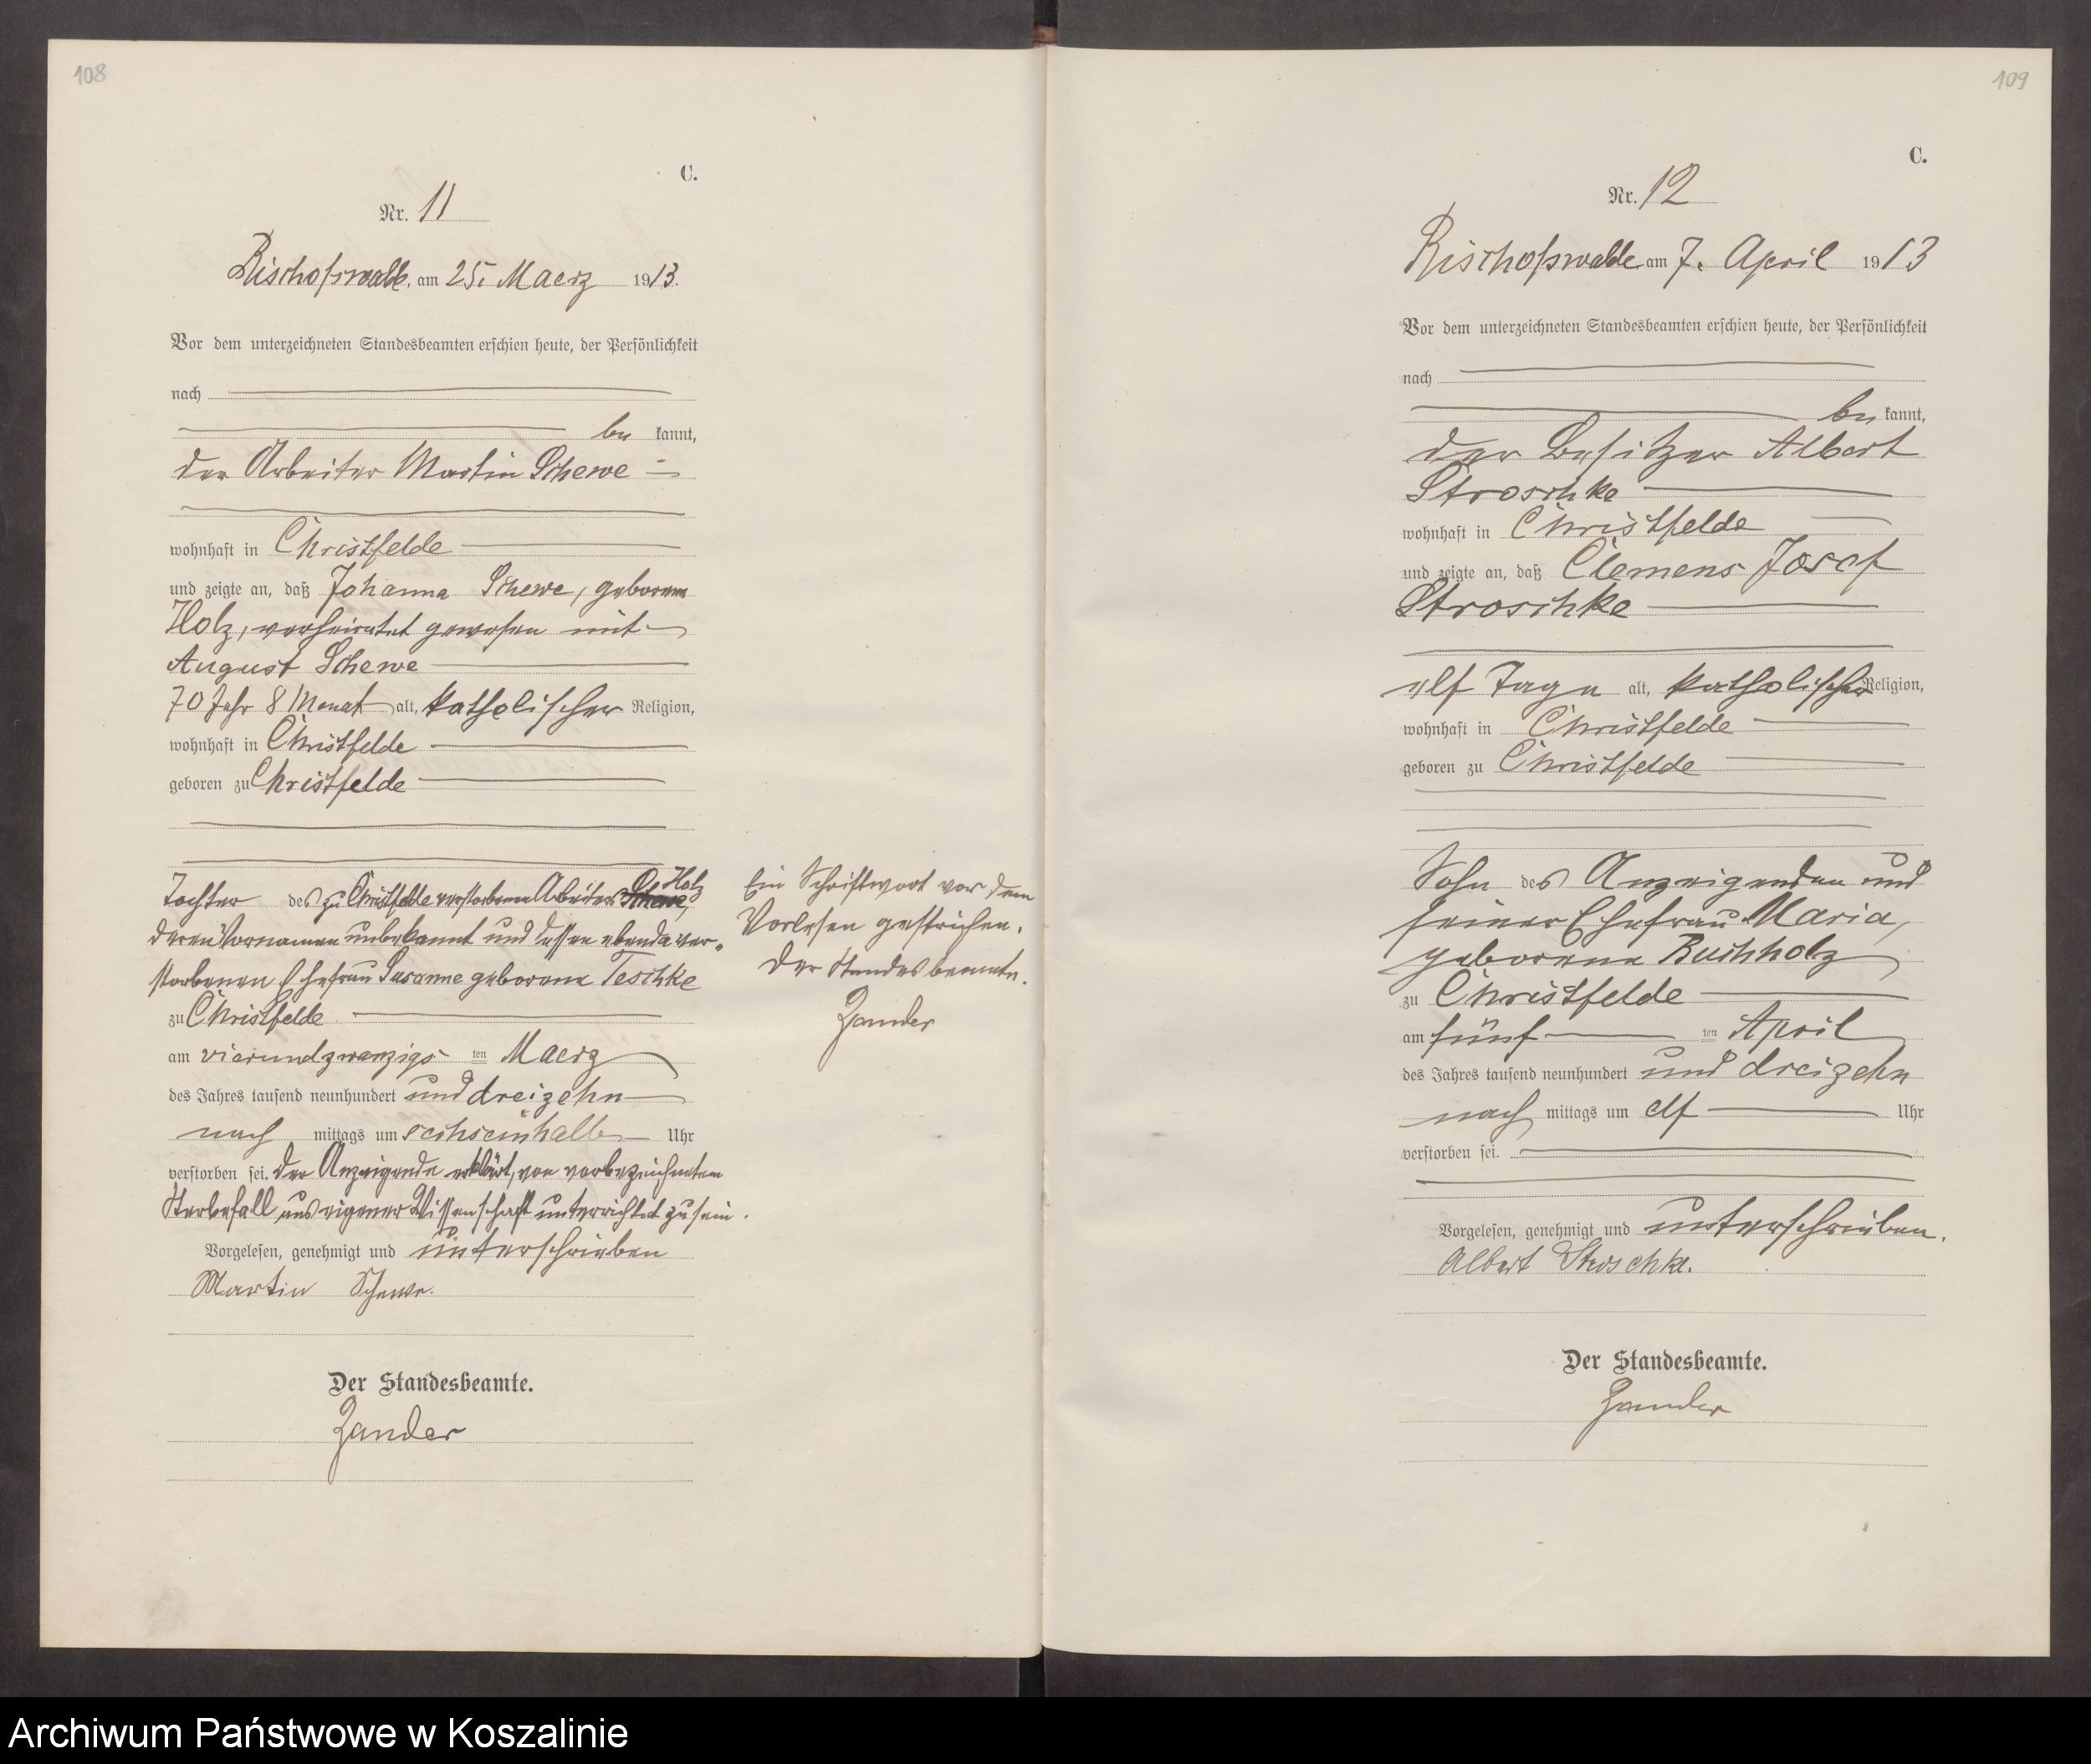 108
C.
Nr. 11
Bischofswalde, am 25. Maerz 1913.
Vor dem unterzeichneten Standesbeamten erschien heute, der Persönlichkeit
nach
be kannt,
der Arbeiter Martin Schewe
wohnhaft in Christfelde
und zeigte an, daß Johanna Schewe, geborene
Holz, verheiratet gewesen mit
August Schewe
70 Jahr 8 Monat alt, katholischer Religion,
wohnhaft in Christfelde
geboren zu Christfelde
Holz
Tochter des zu Christfelde verstorbenen Arbeiters Schewe,
deren Vornamen unbekannt und dessen ebenda ver-
storbenen Ehefrau Susanne geborene Teschke
zu Christfelde
am vierundzwanzigs ten Maerz
des Jahres tausend neunhundert und dreizehn
nach mittags um sechseinhalb Uhr
verstorben sei. Der Anzeigende erklärt, von vorbezeichnetem
Sterbefall aus eigener Wissenschaft unterrichtet zu sein.
Vorgelesen, genehmigt und unterschrieben
Martin Schewe.
Der Standesbeamte.
Zander
Ein Schriftwort vor dem
Vorlesen gestrichen.
Der Standesbeamte.
Zander
109
C.
Nr. 12
Bischofswalde am 7. April 1913
Vor dem unterzeichneten Standesbeamten erschien heute, der Persönlichkeit
nach
be kannt,
der Besitzer Albert
Stroschke
wohnhaft in Christfelde
und zeigte an, daß Clemens Josef
Stroschke
elf Tage alt, katholischer Religion,
wohnhaft in Christfelde
geboren zu Christfelde
Sohn des Anzeigenden und
seiner Ehefrau Maria,
geborene Buchholz
zu Christfelde
am fünf ten April
des Jahres tausend neunhundert und dreizehn
nach mittags um elf Uhr
verstorben sei.
Vorgelesen, genehmigt und unterschrieben.
Albert Stroschke.
Der Standesbeamte.
Zander
Archiwum Państwowe w Koszalinie